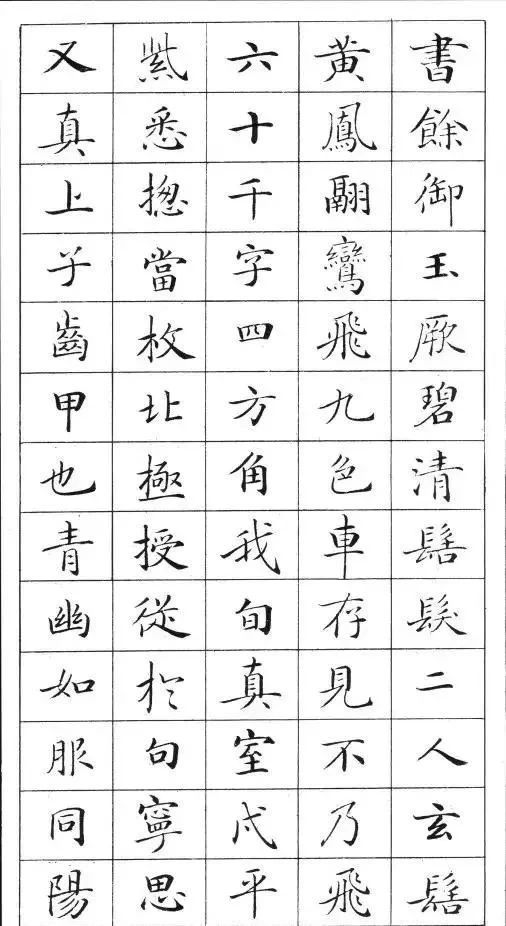 書餘御玉厥碧清髻髮二人玄髻
黃鳳翮鸞飛九色車存見不乃飛
六十千字四方角我旬真室戌平
紫悉揔當枚北極授從於句寧思
又真上子齒甲也青幽如服同陽